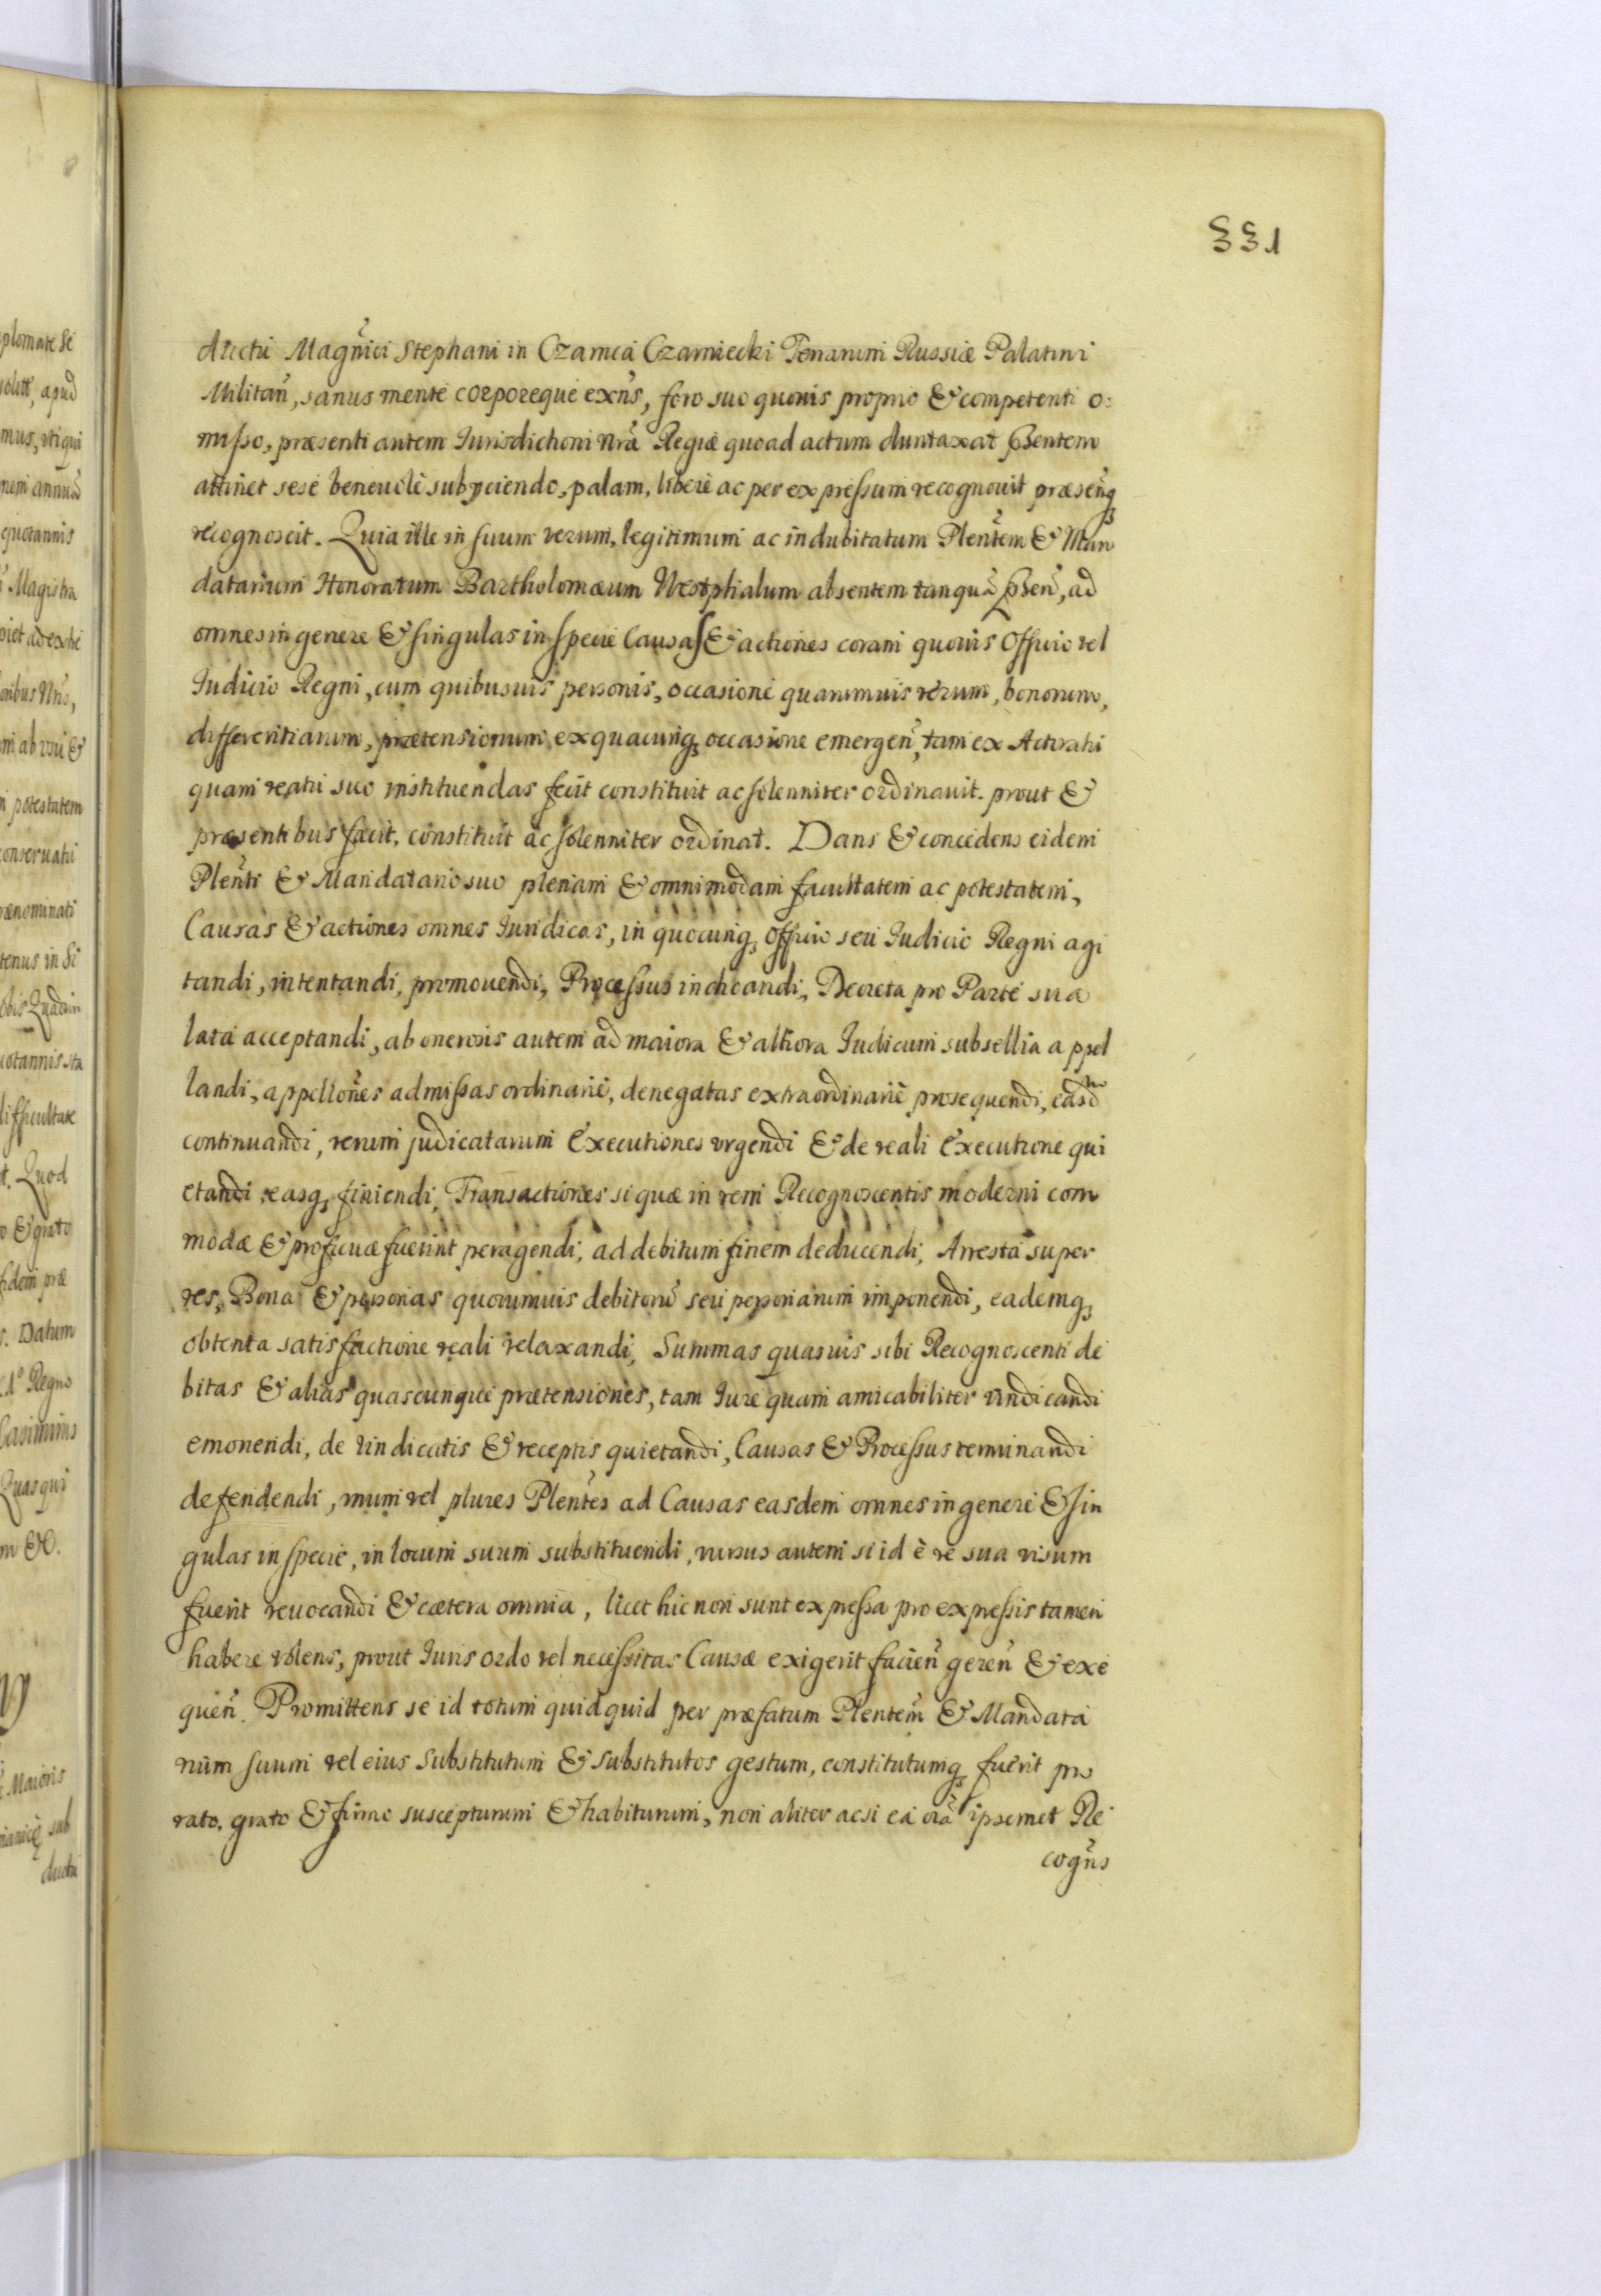 331
ductu Magn̄ici Stephani in Czarnca Czarniecki Terrarum Russiæ Palatini
Militan̄, sanus mente corporeque exn̄s, foro suo quovis proprio & competenti o:
misso, præsenti autem Iurisdictioni Nr̄æ Regiæ quoad actum duntaxat p̄sentem
attinet sese benevolè subyciendo, palam, liberè ac per expressum recognovit præsenq̄
recognoscit. Quia ille in suum verum, legitimum ac indubitatum Plen̄tem & Man
datarium Honoratum Bartholomæum Westphalum absentem tanquā p̄sen̄, ad
omnes in genere & singulas in specie Causas & actiones coram quovis Officio vel
Iudicio Regni, cum quibusvis personis, occasione quarumvis rerum, bonorum,
differentiarum, prætensionum ex quacunq, occasione emergen̄, tam ex Actoratu
quam reatu suo instituendas fecit constituit ac solenniter ordinavit. prout &
præsentibus facit, constituit ac solenniter ordinat. Dans & concedens eidem
Plen̄ti & Mandatario suo plenam & omnimodam facultatem ac potestatem,
Causas & actiones omnes Iuridicas, in quocunq, Officio seu Iudicio Regni agi
tandi, intentandi, promovendi, Processus inchoandi, Decreta pro Parte sua
lata acceptandi, ab onerosis autem ad maiora & altiora Iudicum subsellia appel
landi, appellōnes admissas ordinariè, denegatas extraordinariè prosequendi, easdm
continuandi, rerum judicatarum Executiones urgendi & de reali Executione qui
etandi easq, finiendi, Transactiones si quæ in rem Recognoscentis moderni com
modæ & proficuæ fuerint peragendi, ad debitum finem deducendi, Arresta super
res, Bona & personas quorumvis debitorū seu personarum imponendi, eademq,
obtenta satisfactione reali relaxandi, Summas quasvis sibi Recognoscenti de
bitas & alias quascunque prætensiones, tam Iure quam amicabiliter vindicandi
emonendi, de vindicatis & receptis quietandi, Causas & Processus terminandi
defendendi, unum vel plures Plen̄tes ad Causas easdem omnes in genere & sin
gulas in specie, in locum suum substituendi, rursus autem si id è re sua visum
fuerit revocandi & cætera omnia, licet hic non sunt expressa pro expressis tamen
habere volens, prout Iuris ordo vel necessitas Causæ exigerit facien̄ geren̄ & exe
quen̄. Promittens se id totum quidquid per præfatum Plen̄tem & Mandata
rium suum vel eius substitutum & substitutos gestum, constitutumq, fuerit pro
rato, grato & firmo suscepturum & habiturum, non aliter acsi ea oīa ipsemet Re
cogn̄s